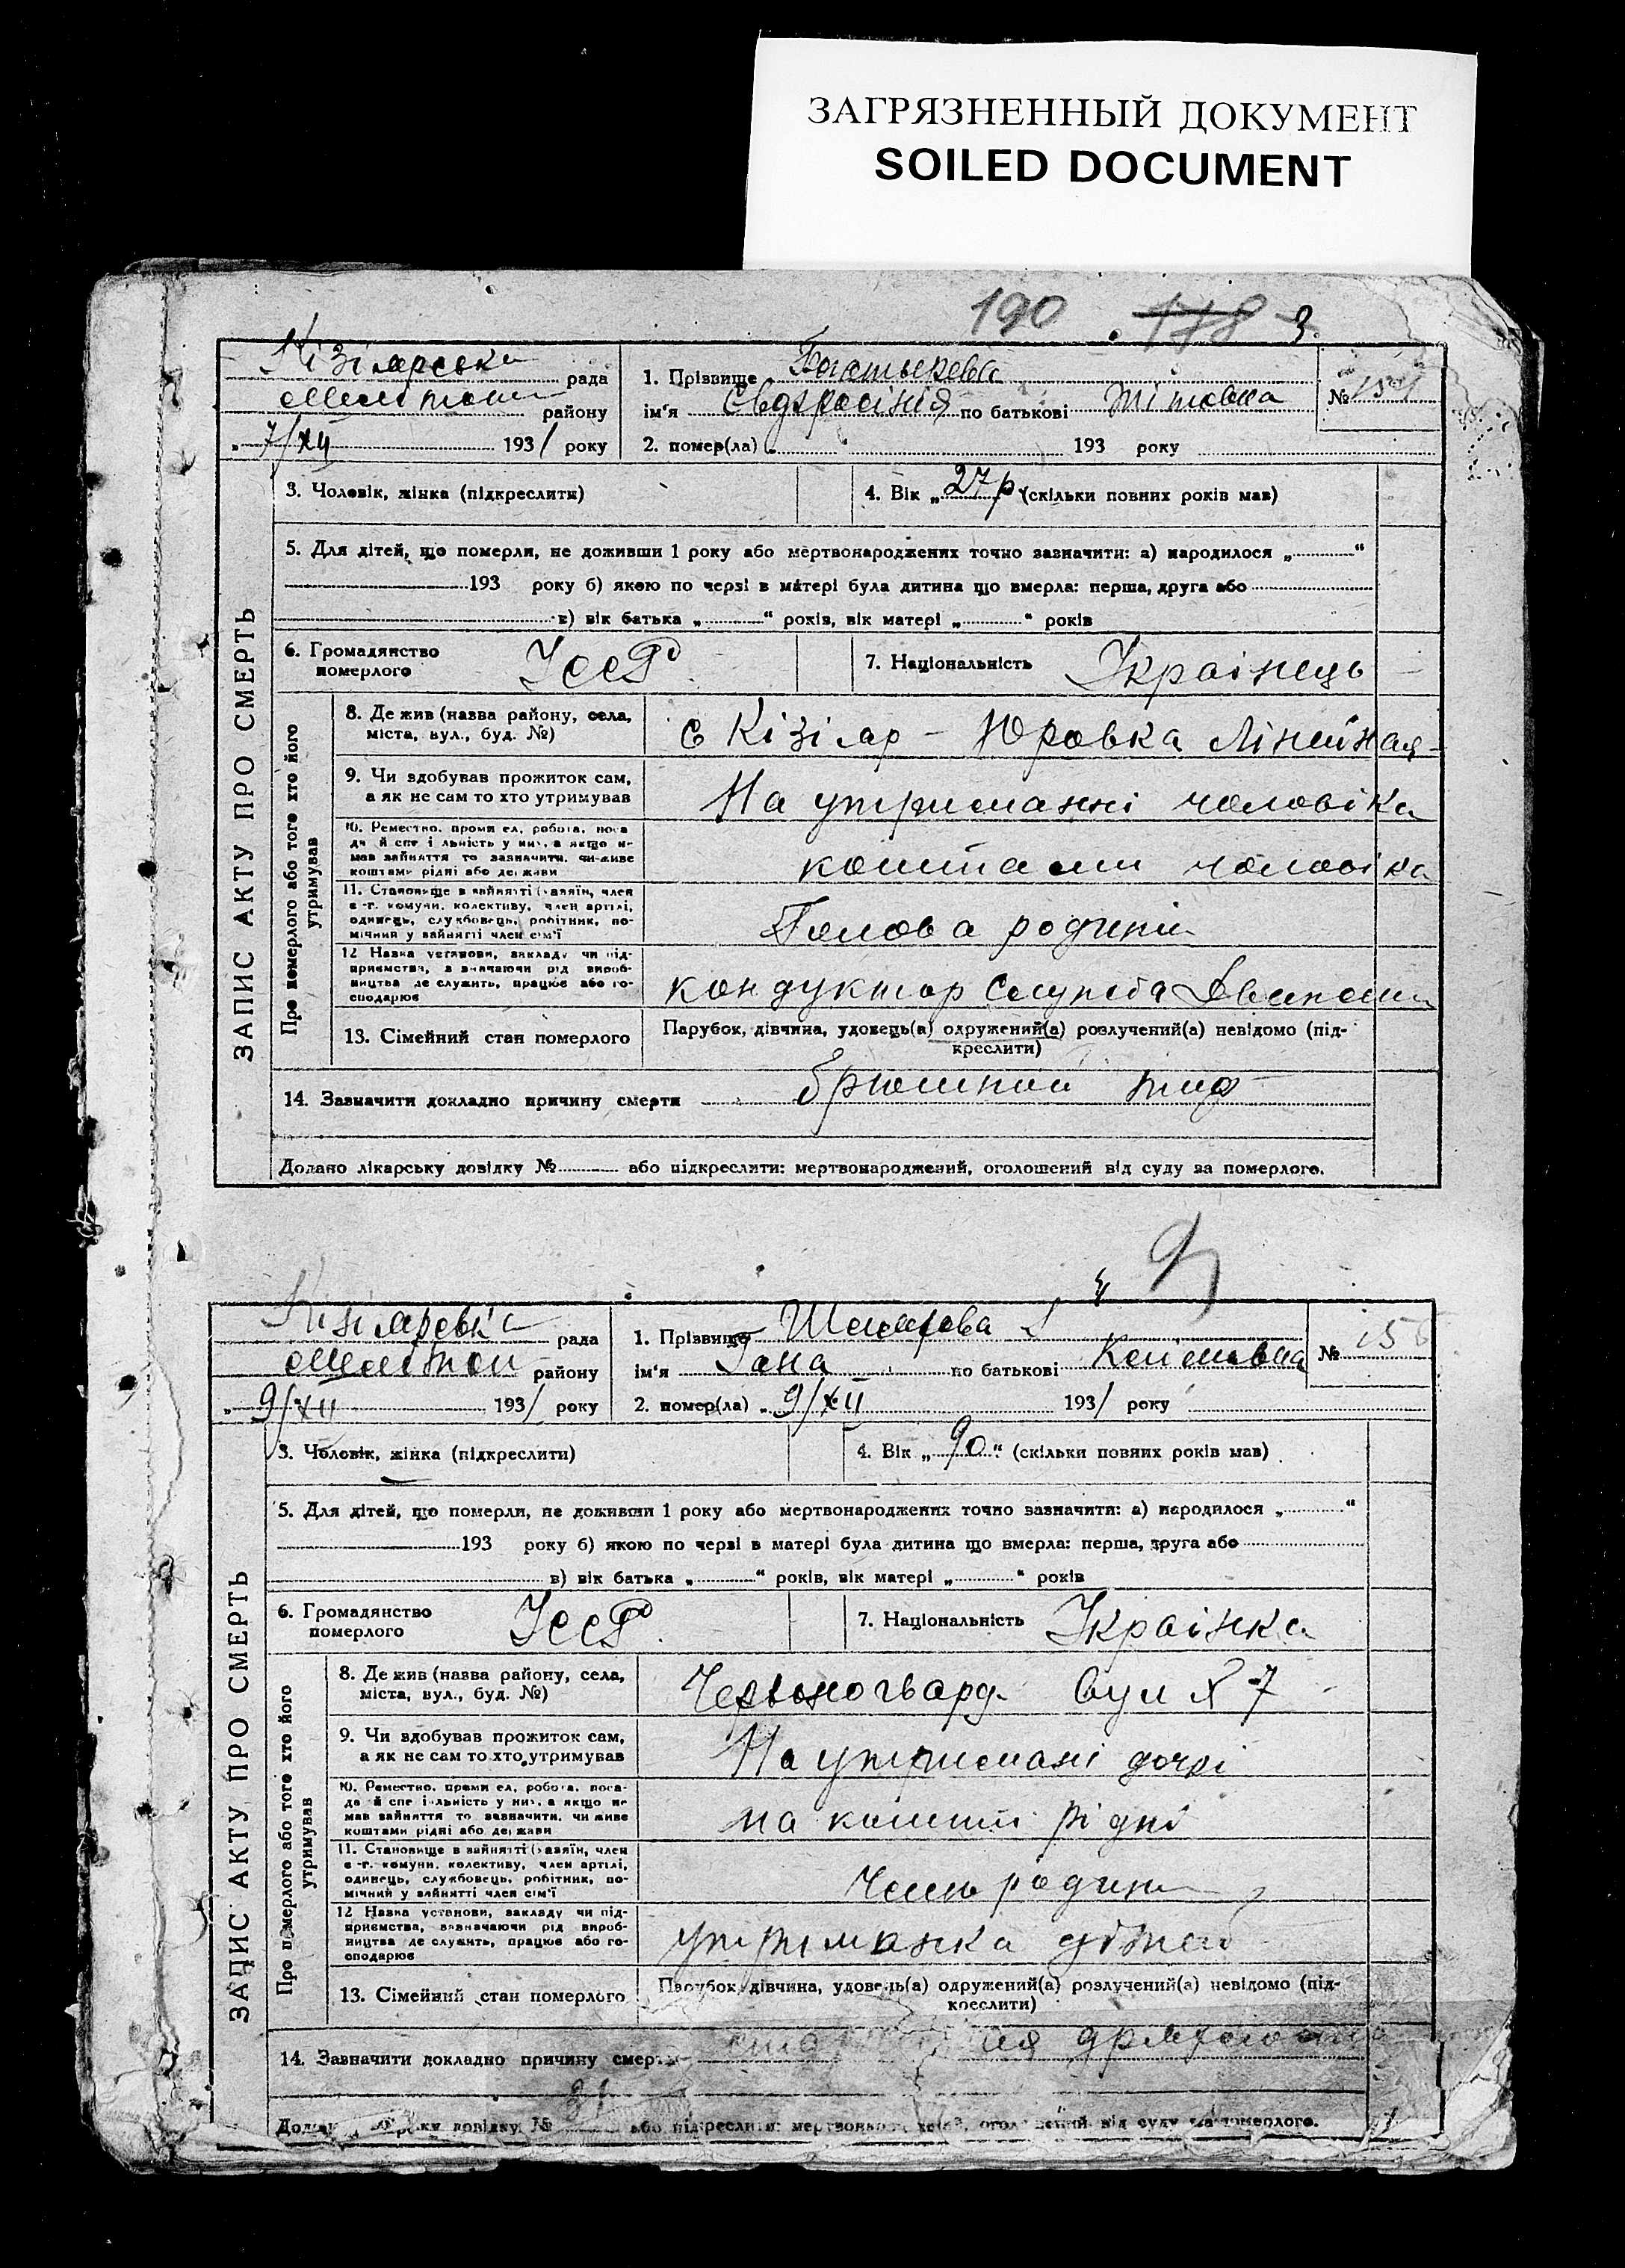 ЗАГРЯЗНЕННЫЙ ДОКУМЕНТ
SOILED DOCUMENT
190 178 3.
Кізіярська рада
Мелітоп району
„ 7/XII 1931 року
1. Прізвище
ім'я Євдхросінія по батькові Тітовна
№
2. помер(ла) „ 193 року
3. Чоловік, жінка (підкреслити)
4. Вік „ 27 р (скільки повних років мав)
5. Для дітей, що померли, не доживши 1 року або мертвонароджених точно зазначити: а) народилося „ “
193 року б) якою по черзі в матері була дитина що вмерла: перша, друга або
в) вік батька „ “ років, вік матері „ “ років
ЗАПИС АКТУ ПРО СМЕРТЬ
6. Громадянство померлого УССР
7. Національність Україінець
Про померлого або того хто його утримував
8. Де жив (назва району, села, міста, вул., буд. №) с Кізіяр - Юровка Лінійная
9. Чи здобував прожиток сам, а як не сам то хто утримував На утриманні чоловіка
10. Ремество, промисел, робота, посада й спеціальність у них, а якщо не мав зайняття то зазначити, чи живе коштами рідні або держави коштами чоловіка
11. Становище в зайнятті (хазяїн, член с.-г. комуни, колективу, член артілі, одинець, службовець, робітник, помічний у зайнятті член сім'ї Голова родини
12 Назва установи, закладу чи підприємства, зазначаючи рід виробництва де служить, працює або господарює кондуктор
13. Сімейний стан померлого Парубок, дівчина, удовець(а) одружений(а) розлучений(а) невідомо (підкреслити)
14. Зазначити докладно причину смерти брюшной тиф
Додано лікарську довідку № або підкреслити: мертвонароджений, оголошений від суду за померлого.
Кізіярська рада
Мелітоп району
„ 9/XII 1931 року
1. Прізвище
ім'я Гана по батькові
№ 156
2. помер(ла) „ 9/XII 1931 року
3. Чоловік, жінка (підкреслити)
4. Вік „ 90 “ (скільки повних років мав)
5. Для дітей, що померли, не доживши 1 року або мертвонароджених точно зазначити: а) народилося „ “
193 року б) якою по черзі в матері була дитина що вмерла: перша, друга або
в) вік батька „ “ років, вік матері „ “ років
ЗАПИС АКТУ ПРО СМЕРТЬ
6. Громадянство померлого УССР
7. Національність Українка
Про померлого або того хто його утримував
8. Де жив (назва району, села, міста, вул., буд. №) Червоногвард. вул № 7
9. Чи здобував прожиток сам, а як не сам то хто утримував На утримані дочкі
10. Ремество, промисел, робота, посада й спеціальність у них, а якщо не мав зайняття то зазначити, чи живе коштами рідні або держави на кошти рідні
11. Становище в зайнятті (хазяїн, член с.-г. комуни, колективу, член артілі, одинець, службовець, робітник, помічний у зайнятті член сім'ї Член родини
12 Назва установи, закладу чи підприємства, зазначаючи рід виробництва де служить, працює або господарює утриманка дітей
13. Сімейний стан померлого Парубок, дівчина, удовець(а) одружений(а) розлучений(а) невідомо (підкреслити)
14. Зазначити докладно причину смерти
Додано лікарську довідку № або підкреслити: мертвонароджений, оголошений від суду за померлого.